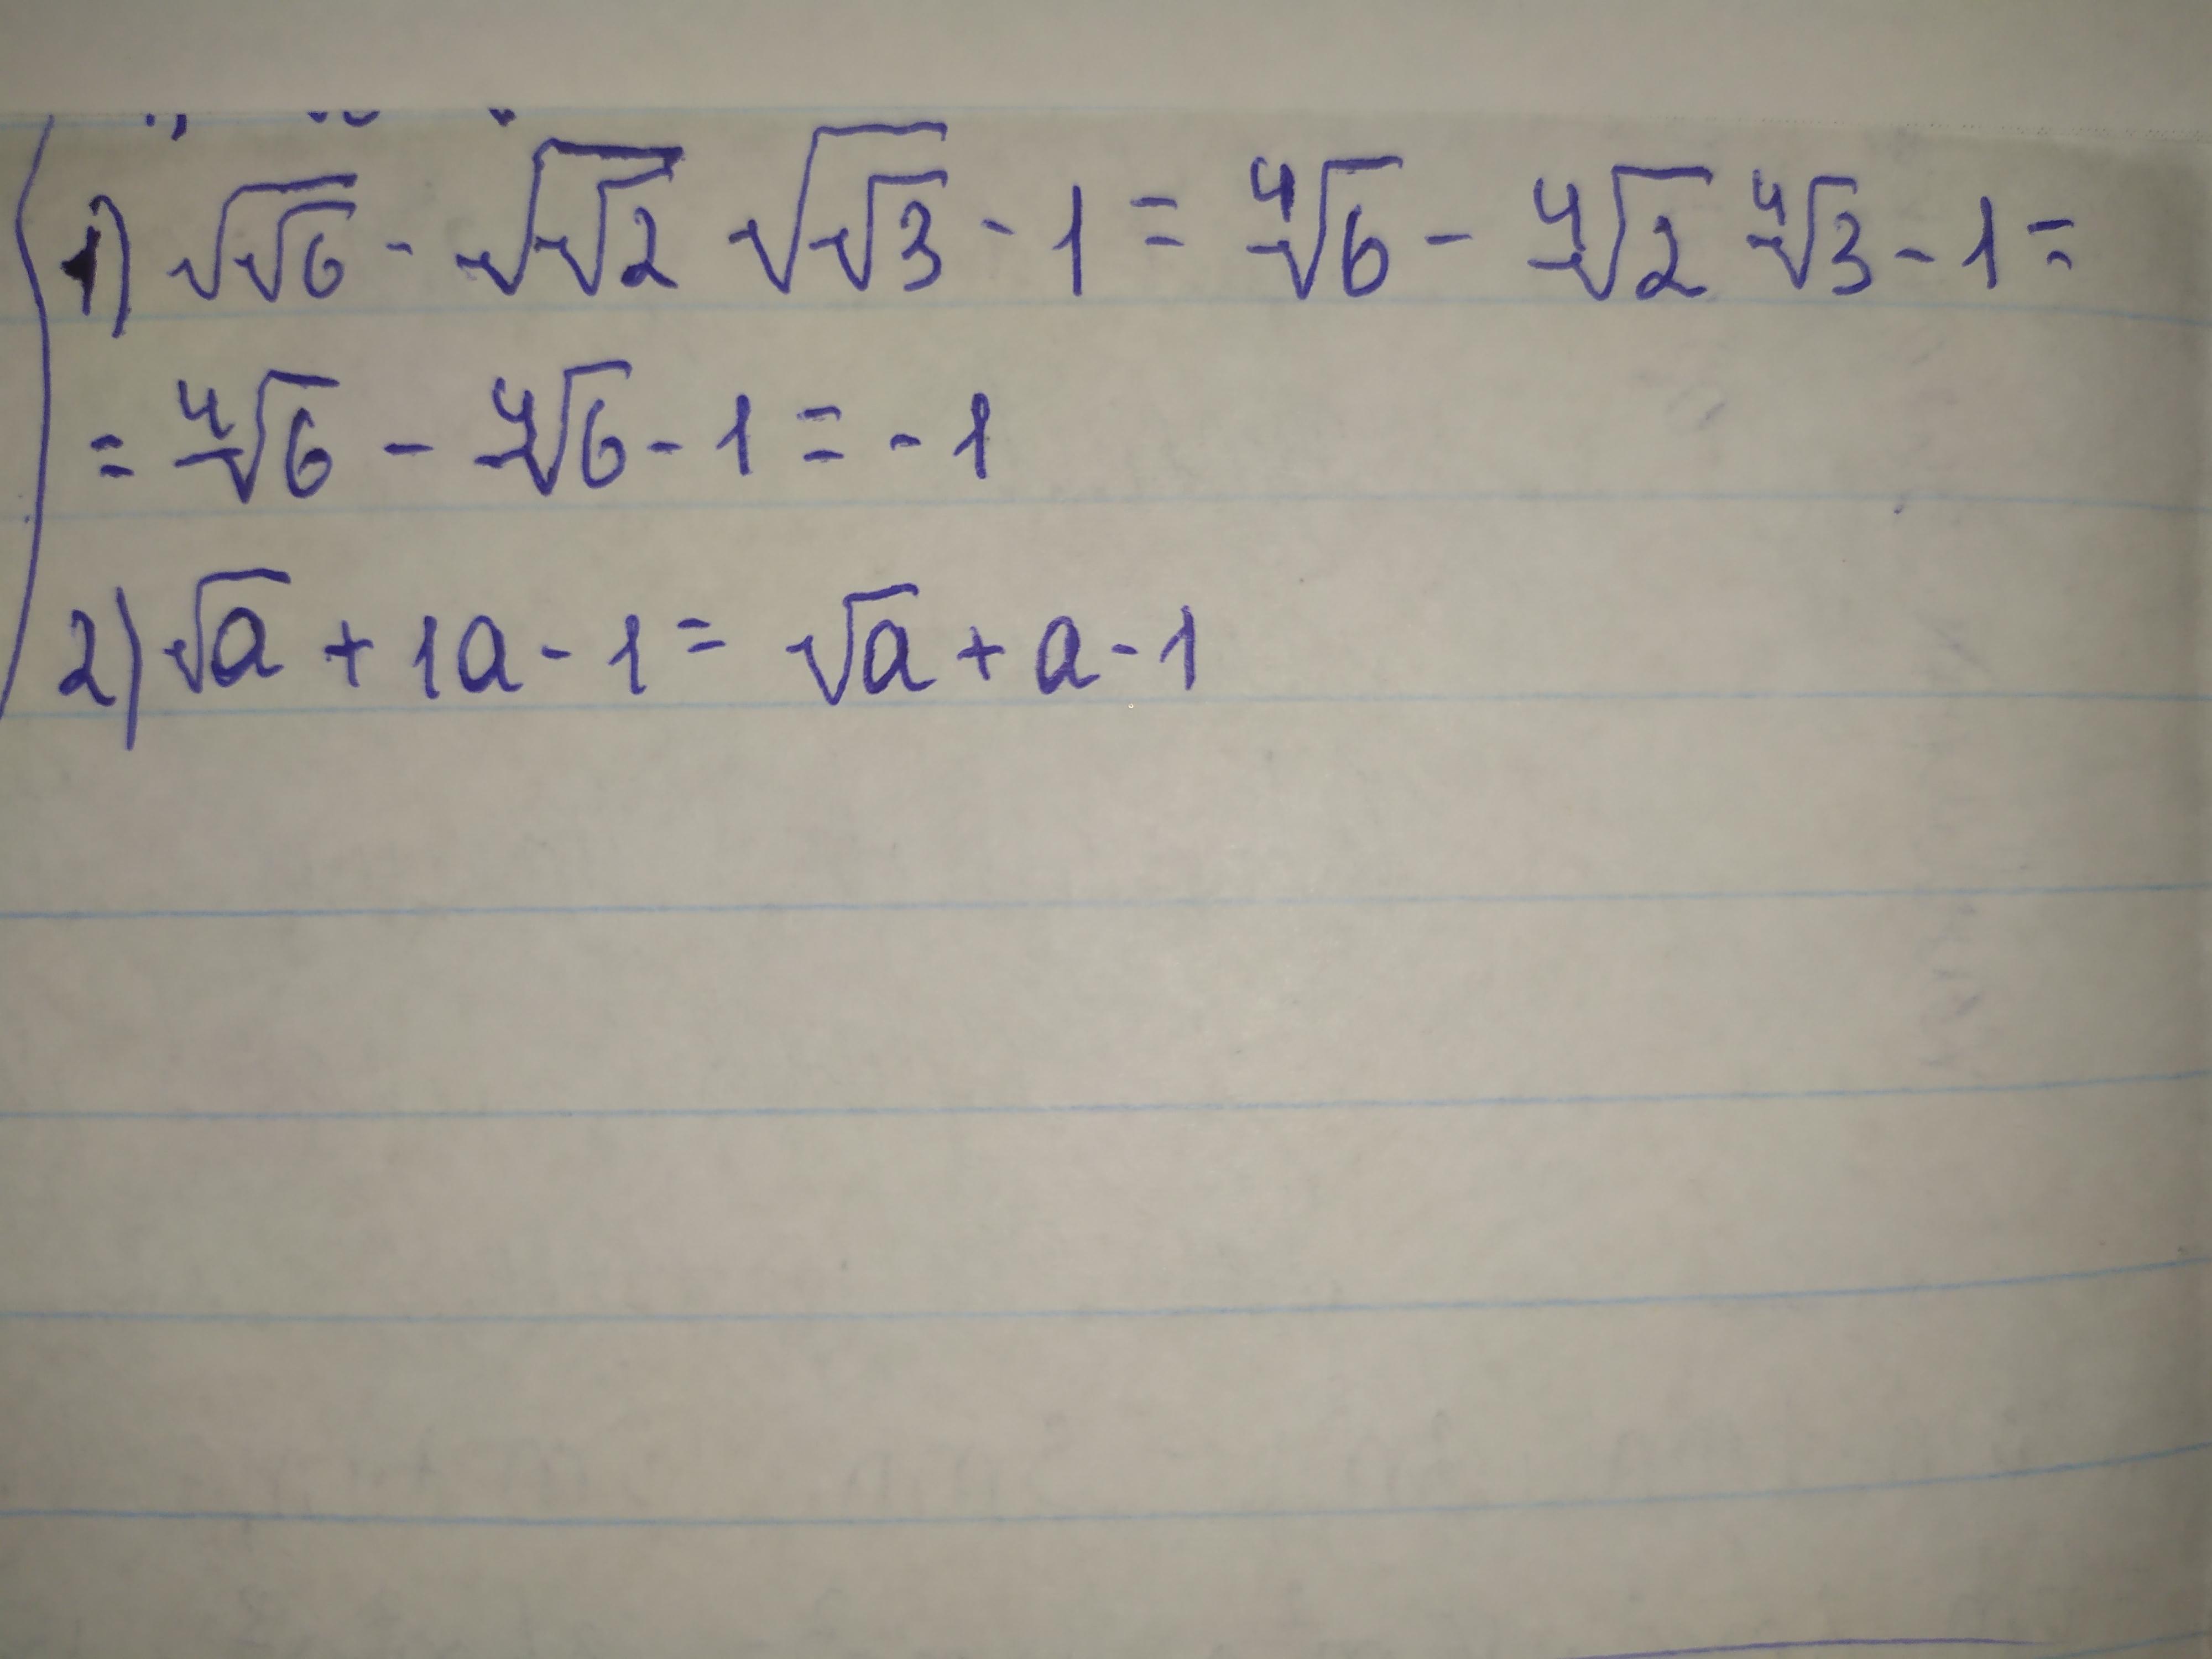 1) √√6 - √√2 √√3 - 1 = ⁴√6 - ⁴√2 ⁴√3 - 1 =
= ⁴√6 - ⁴√6 - 1 = - 1
2) √a + 1a - 1 = √a + a - 1